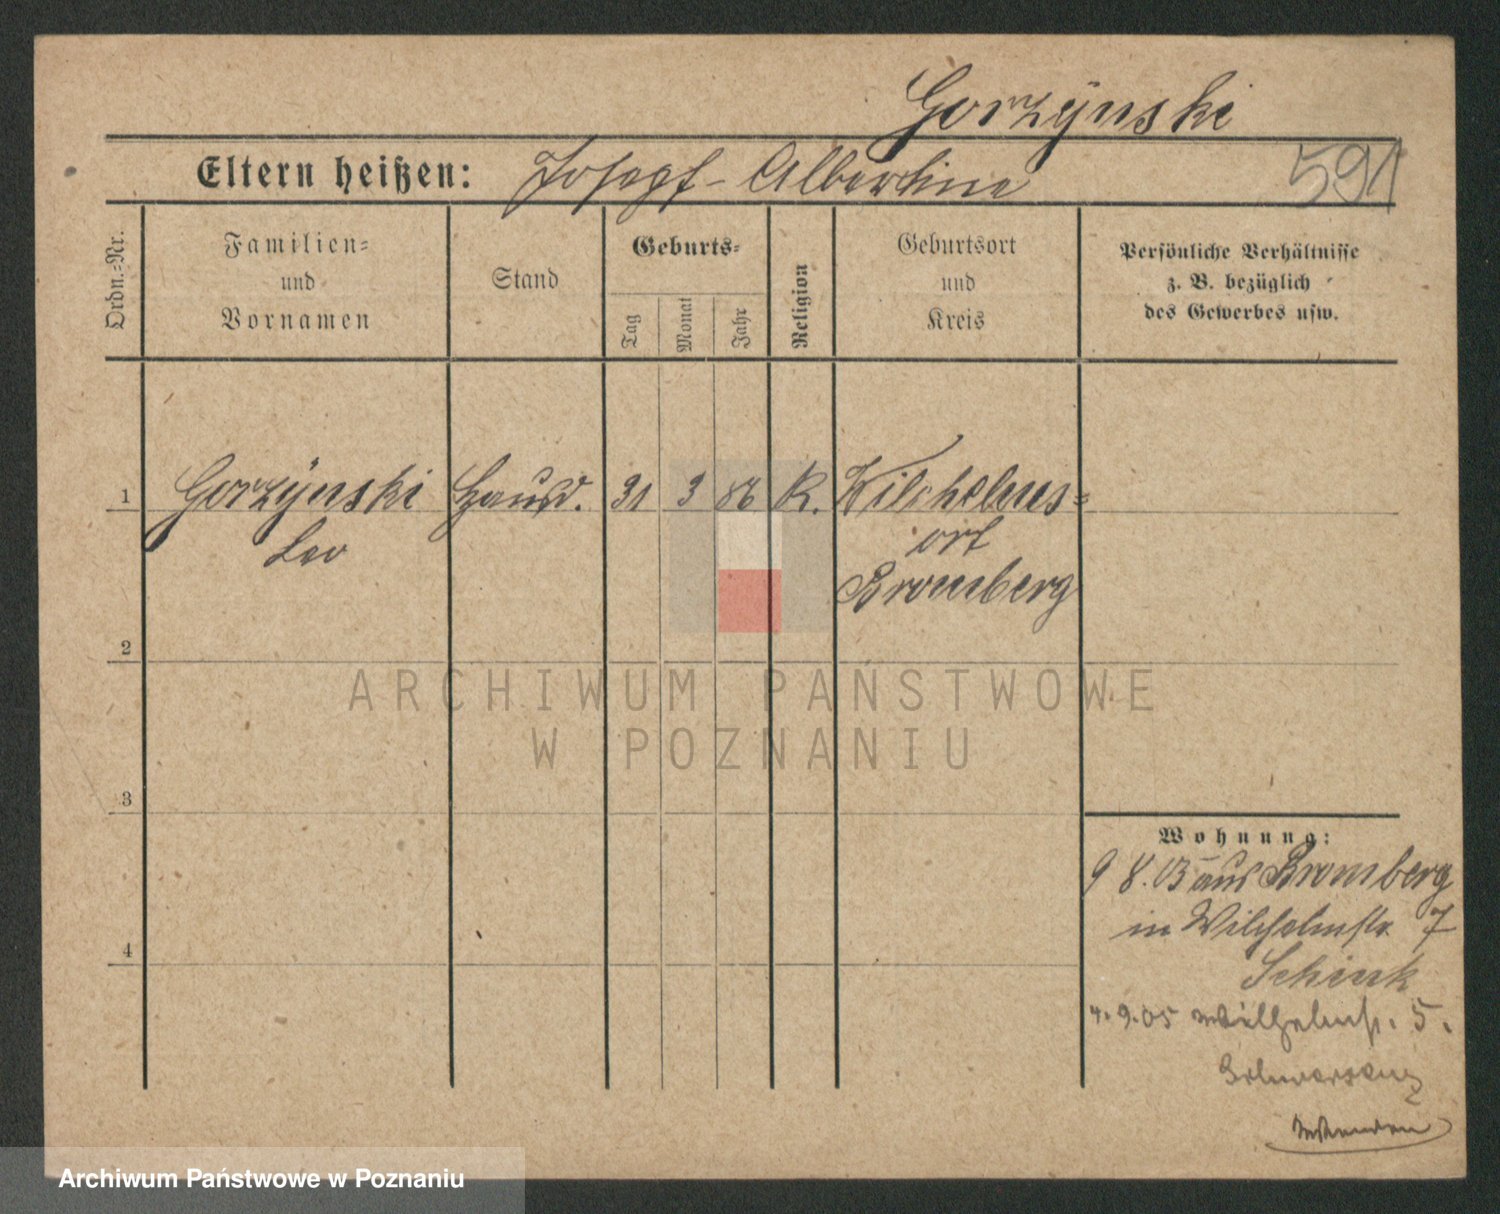 Gorzÿnski
Eltern heißen: Josepf - Albertine
591
Ordn.=Nr.
Familien=
und
Vornamen
Stand
Geburts=
Tag
Monat
Jahr
Religion
Geburtsort
und
Kreis
Persönliche Verhältnisse
z. B. bezüglich
des Gewerbes usw.
1 Gorzÿnski Hausd. 31 3 86 K. Wilhelms=
Leo ort
Bromberg
2
ARCHIWUM PAŃSTWOWE
W POZNANIU
3
Wohnung:
9 8.05 aus Bromberg
in Wilhelmstr. 7
Schenk
4
4.9.05 Wilhelmstr. 5.
Archiwum Państwowe w Poznaniu